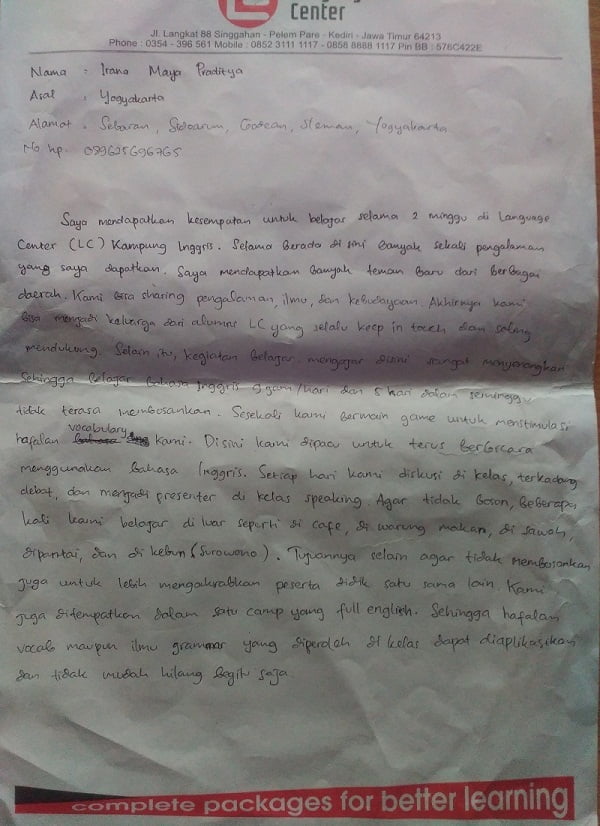 Center
Jl. Langkat 88 Singgahan - Pelem Pare - Kediri - Jawa Timur 64213
Phone : 0354 - 396 561 Mobile : 0852 3111 1117 - 0856 8888 1117 Pin BB : 576C422E
Nama : Irana Maya Praditya
Asal : Yogyakarta
Alamat : Sebaran, Sidoarum, Godean, Sleman, Yogyakarta
No hp. 089625696765
Saya mendapatkan kesempatan untuk belajar selama 2 minggu di Language
Center (LC) Kampung Inggris. Selama berada di sini banyak sekali pengalaman
yang saya dapatkan. Saya mendapatkan banyak teman baru dari berbagai
daerah. Kami bisa sharing pengalaman, ilmu, dan kebudayaan. Akhirnya kami
bisa menjadi keluarga dari alumni LC yang selalu keep in touch dan saling
mendukung. Selain itu, kegiatan belajar mengajar disini sangat menyenangkan
Sehingga belajar bahasa Inggris 9 jam/hari dan 5 hari dalam seminggu
tidak terasa membosankan. Sesekali kami bermain game untuk menstimulasi
hafalan vocabulary kami. Disini kami dipacu untuk terus berbicara
menggunakan bahasa Inggris. Setiap hari kami diskusi di kelas, terkadang
debat, dan menjadi presenter di kelas speaking. Agar tidak bosan, beberapa
kali kami belajar di luar seperti di cafe, di warung makan, di sawah,
dipantai, dan di kebun (Surowono). Tujuannya selain agar tidak membosankan
juga untuk lebih mengakrabkan peserta didik satu sama lain. Kami
juga ditempatkan dalam satu camp yang full english. Sehingga hafalan
vocab maupun ilmu grammar yang diperolah di kelas dapat diaplikasikan
dan tidak mudah hilang begitu saja
complete packages for better learning